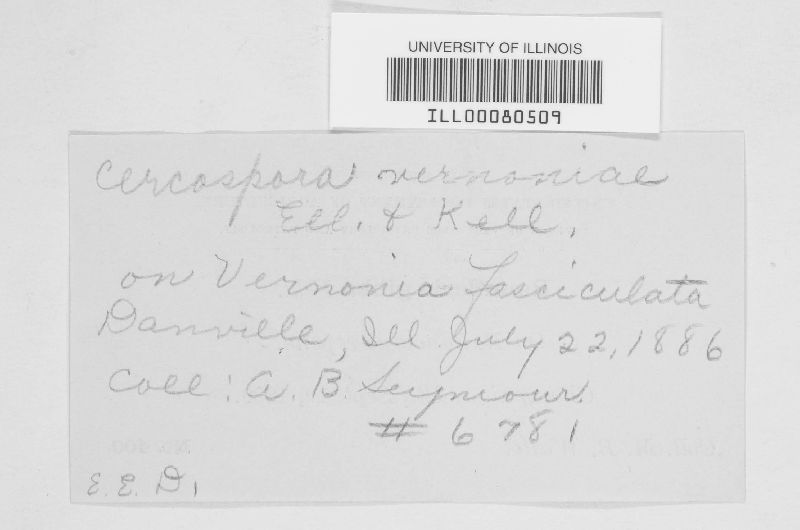 UNIVERSITY OF ILLINOIS
ILL00080509
Cercospora vernoniae
Ell. & Kell.
on Vernonia fasciculata
Danville, Ill. July 22, 1886
Coll: A. B. Seymour.
# 6781
E. E. D.